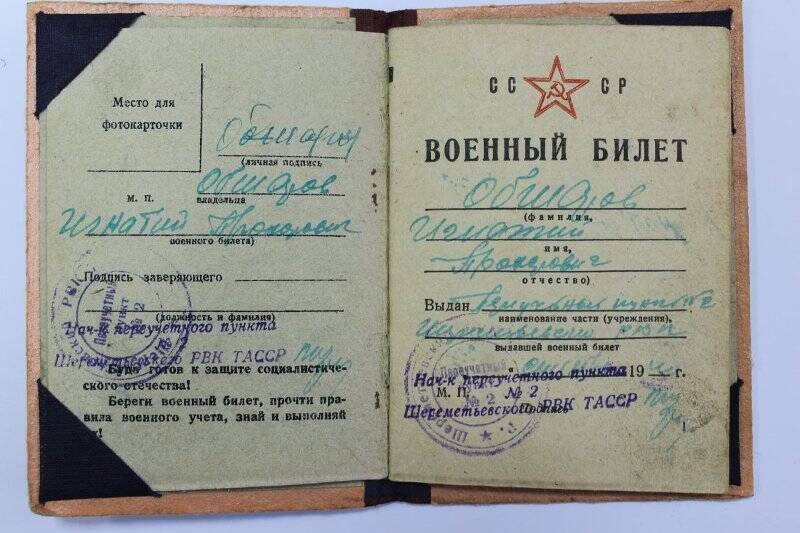 Место для
фотокарточки
(личная подпись
Обшаров
владельца
М. П.
Игнатий Прохорович
военного билета)
Подпись заверяющего
(должность и фамилия)
Нач-к переучетного пункта
Шереметьевского РВК ТАССР
Будь готов к защите социалистиче-
ского отечества!
Береги военный билет, прочти пра-
вила военного учета, знай и выполняй
СССР
ВОЕННЫЙ БИЛЕТ
Обшаров
(фамилия,
Игнатий
имя,
Прохорович
отчество)
Выдан
пункт
наименование части (учреждения),
РВК
выдавшей военный билет
19 г.
Нач-к переучетного пункта
М. П. № 2
Шереметьевского РВК ТАССР
Подпись
Переучетный
пункт
№ 2
РВК
Переучетный
№ 2